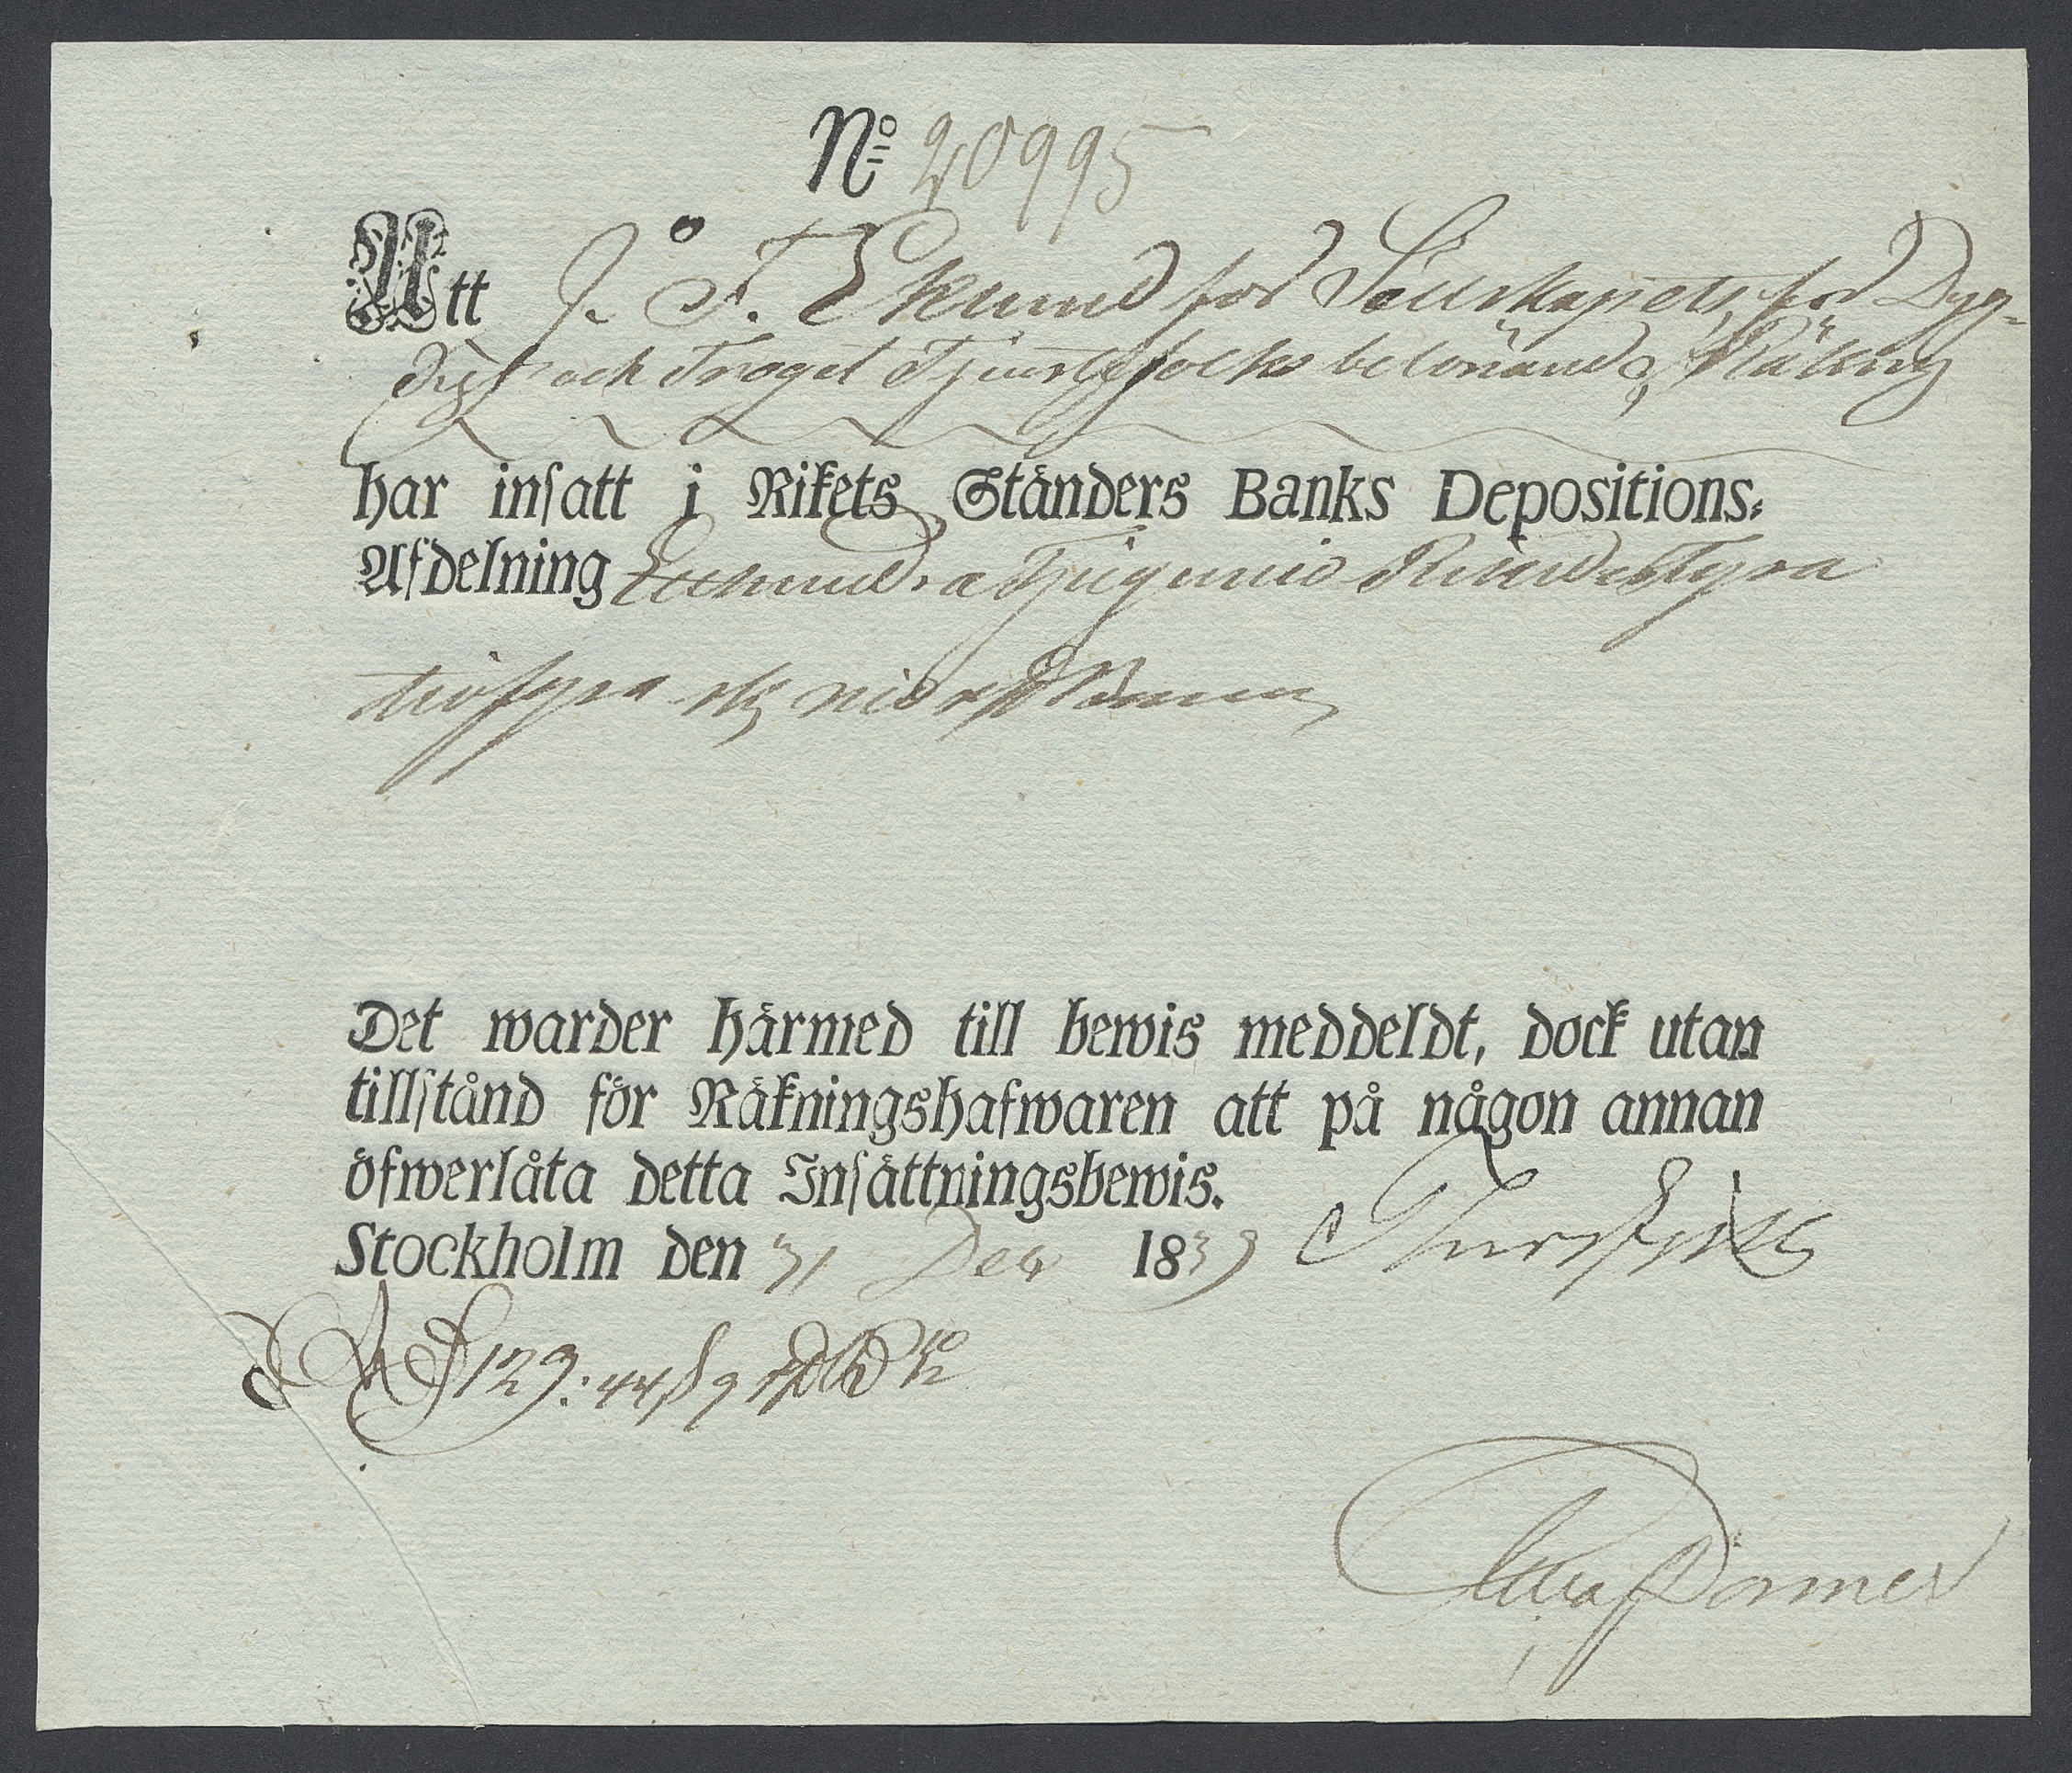 No 20995
Att J. F. Eklund för Sällskapets för Dyg-
digt och Troget Tjenstefolks belönande Räkning
har insatt i Rikets Ständers Banks Depositions-
Afdelning Etthundra Tjugunio Riksd
tiofyra sk nio rst Banco
Det warder härmed till bewis meddeldt, dock utan
tillstånd för Räkningshafwaren att på någon annan
öfwerlåta detta Insättningsbewis.
Stockholm den 31 Dec 1839
129: 44 s 9 r